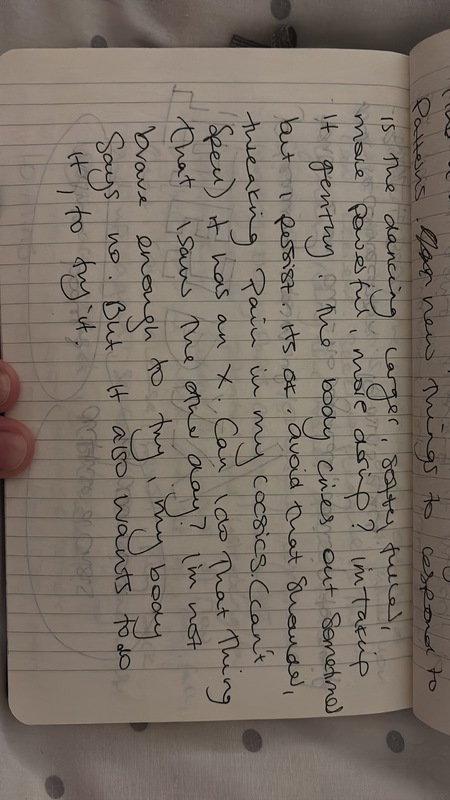 Patterns. new things to respond to
Is the dancing larger, softer, fuller,
more powerful, more doing? im taking
it gently. The body cries out sometimes
but I persist. its ot. avoid that shoulder,
tweaking pain in my coccsics. (can't
spell) it has an x. Can I do that thing
that I saw the other day? I'm not
brave enough to try, my body
says no. But it also wants to do
it, to try it.